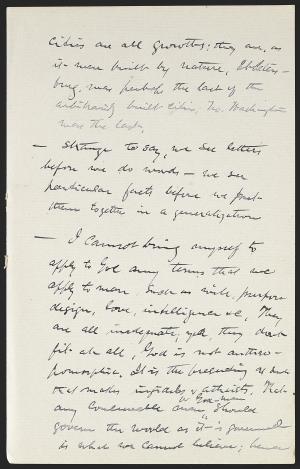 cities are all growths; they are, as
it were built by nature, St. Peters-
burg, was perhaps the last of the
arbitrarily built cities, No, Washington
was the last,
— Strange to say, we see letters
before we do words — we see
particular facts before we put
them together in a generalization
— I cannot bring myself to
apply to God any terms that we
apply to man, such as will, purpose
design, love, intelligence &c, They
are all inadequate, yea, they don't
fit at all, God is not anthro-
pomorphic. It is the of such
that makes infidels & atheists, That
any conceivable man, or God-man should
govern the world as it is governed
is what we cannot believe; hence